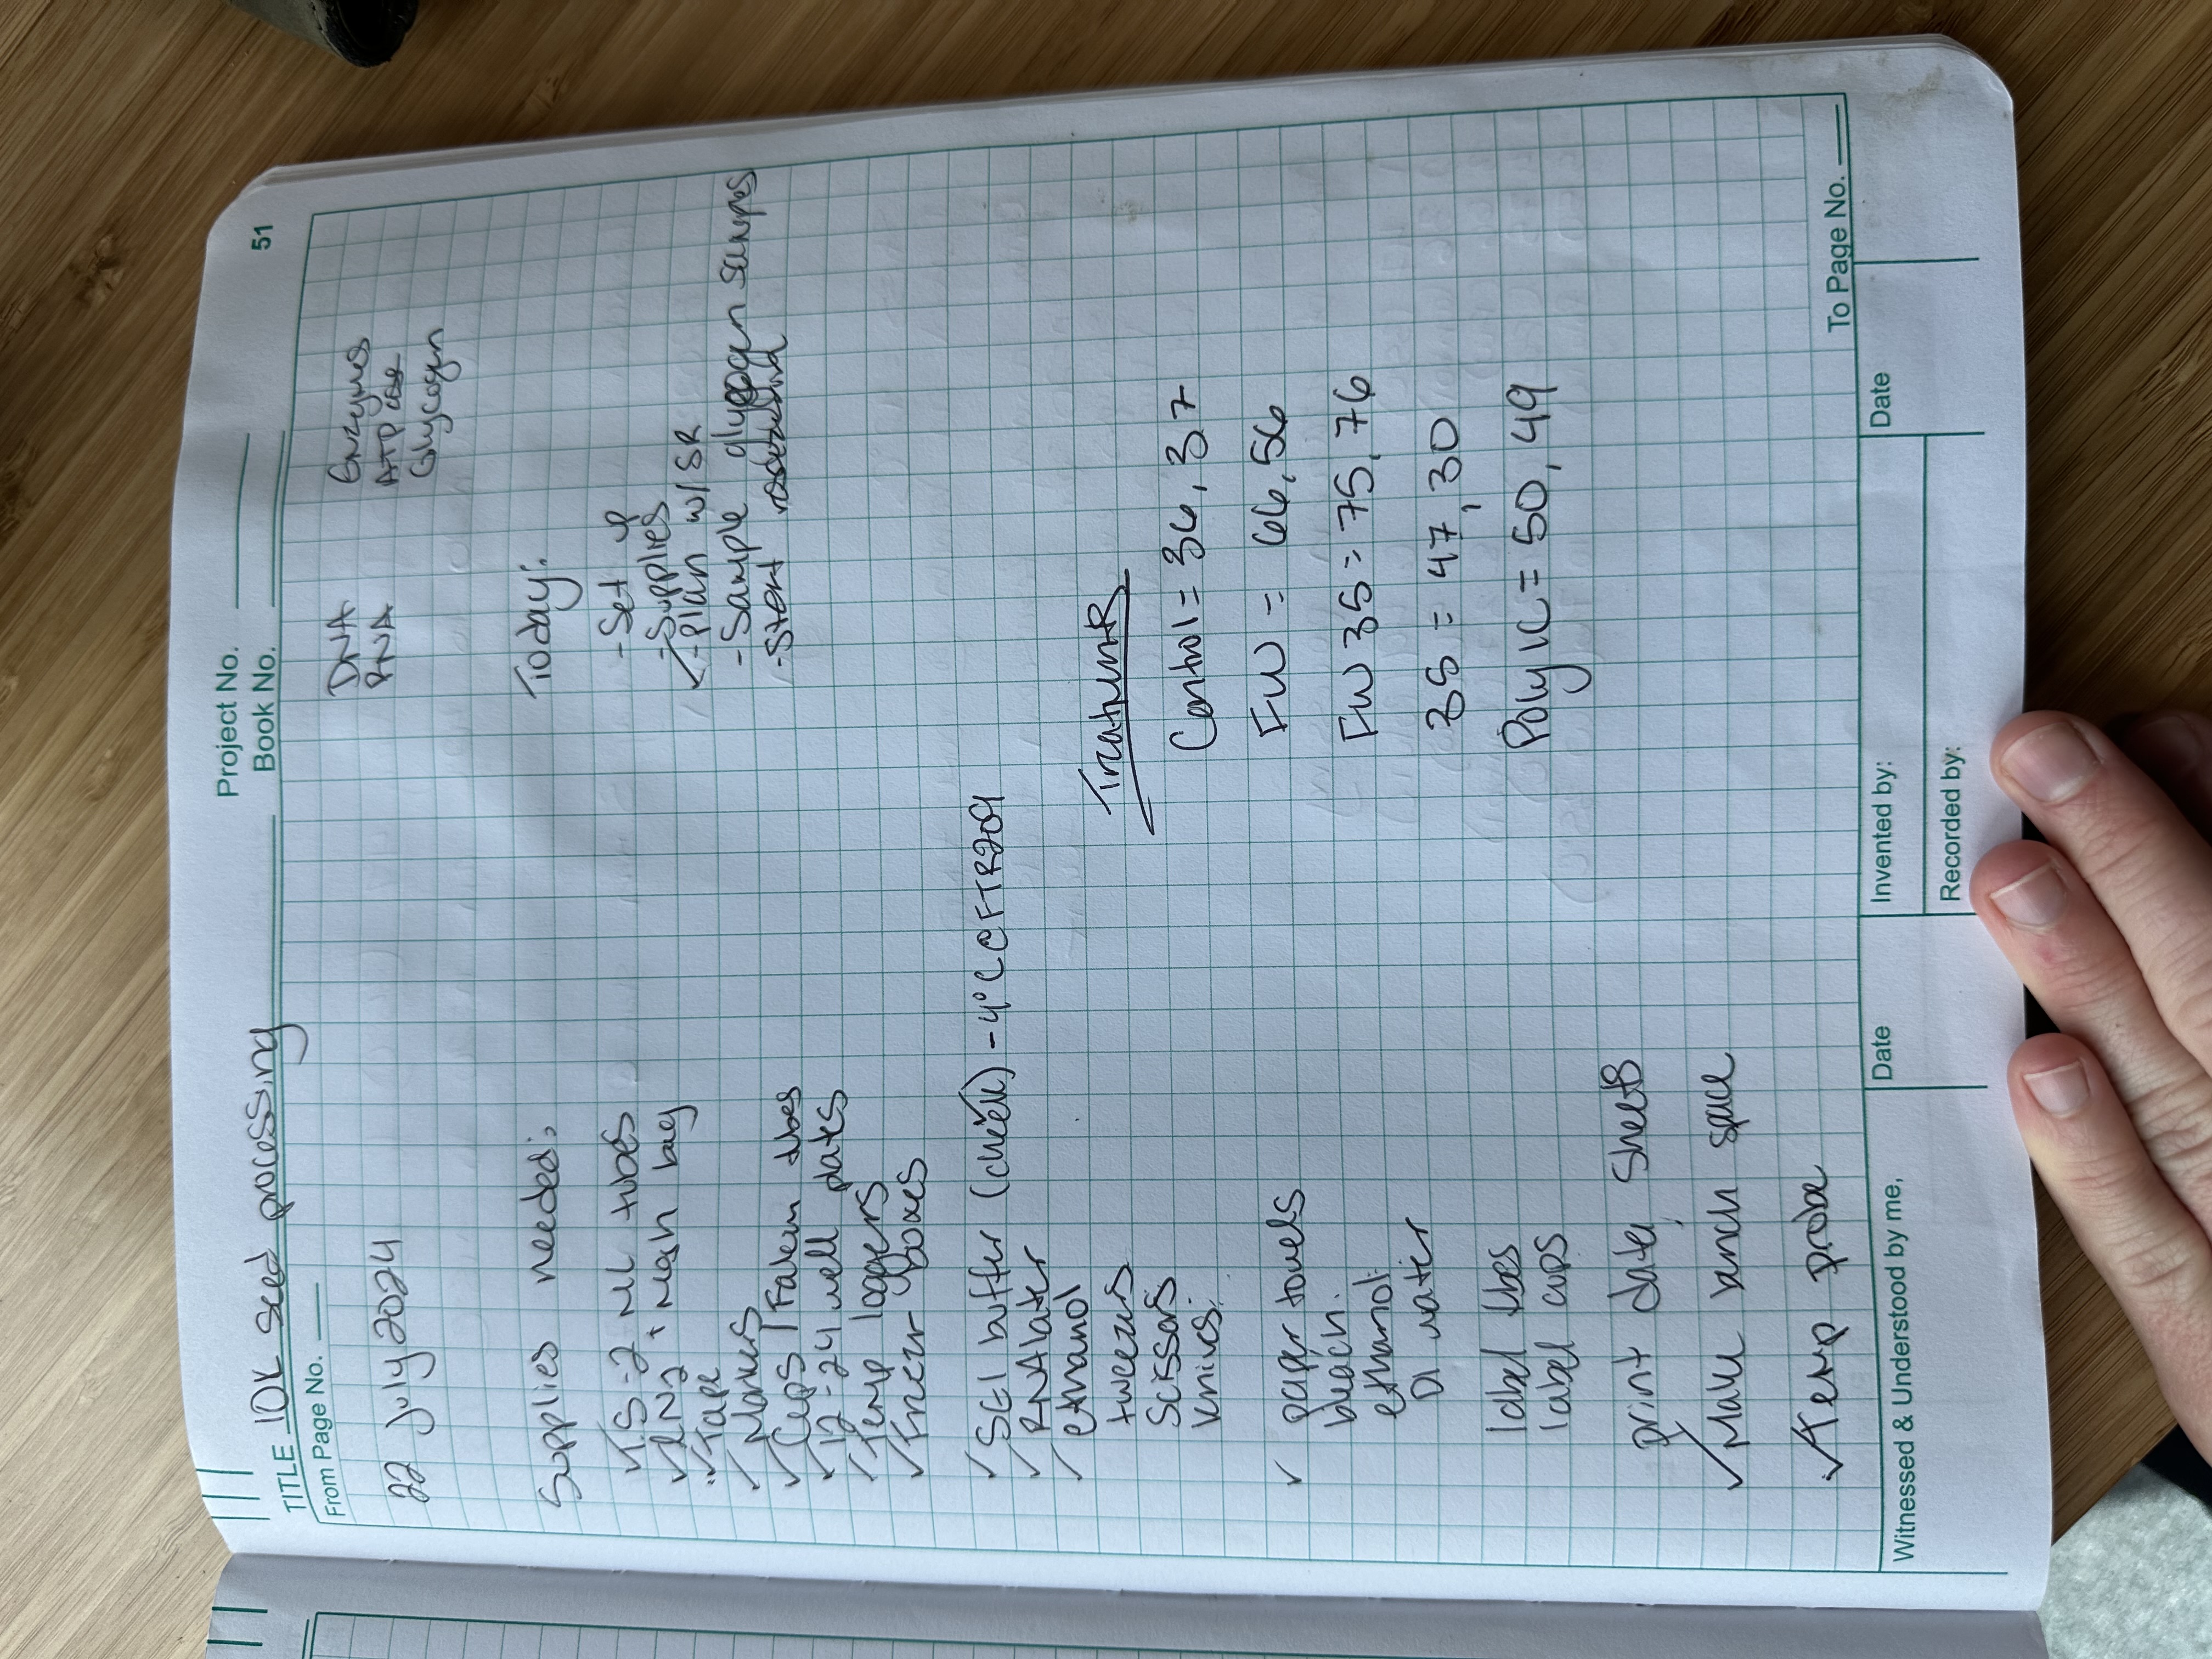 Project No.
Book No.
51
TITLE 10K seed processing
From Page No.
22 July 2024
DNA
RNA
Enzymes
ATP ase
Glycogen
Supplies needed:
✓1.5-2 mL tubes
✓LN2 + Mesh bag
✓Tape
✓Markers
✓Cups / Falcon tubes
✓12-24 well plates
✓Temp loggers
✓Freezer boxes
✓SE1 buffer (check) - 4°C @ FTR209
✓RNAlater
✓ethanol
tweezers
Scissors
knives
✓ paper towels
bleach
ethanol
DI water
label tubes
label cups
print data sheets
✓Make bench space
✓Temp probe
Today:
-Set up
-Supplies
✓-Plan w/ SR
-Sample glycogen samples
-Start resazurin
Treatments
Control = 36, 37
FW = 66, 56
FW 35 = 75, 76
35 = 47, 30
Poly IC = 50, 49
To Page No.
Witnessed & Understood by me,
Date
Invented by:
Date
Recorded by: